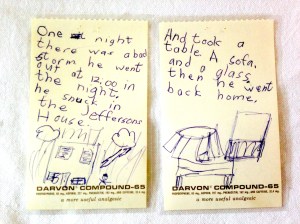 One night
there was a bad
storm he went
out at 12,00 in
the night,
he snuck in
the Jeffersons
House
DARVON® COMPOUND-65
a more useful analgesic
And took a
table. A sofa,
and a glass,
then he went
back home,
DARVON® COMPOUND-65
a more useful analgesic